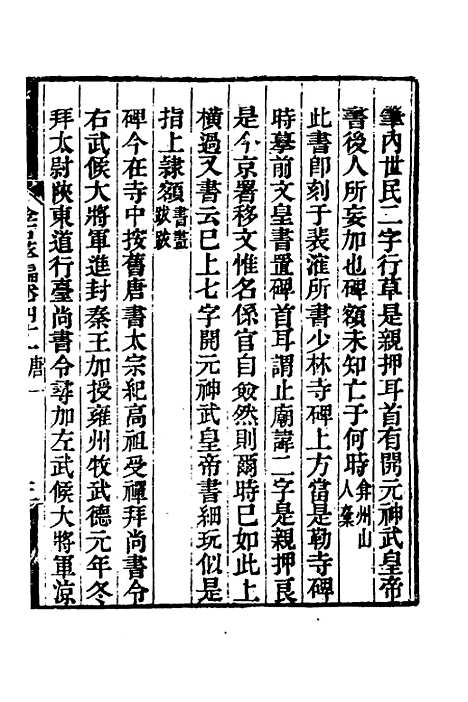 筆內世民二字行草是親押耳首有開元神武皇帝
書後人所妄加也碑額未知亡于何時弇州山人稾
此書卽刻于裴漼所書少林寺碑上方當是勒寺碑
時摹前文皇書置碑首耳謂止廟諱二字是親押良
是今京署移文惟名係官自僉然則爾時已如此上
橫過又書云已上七字開元神武皇帝書細玩似是
指上隸額書畫跋跋
碑今在寺中按舊唐書太宗紀高祖受禪拜尚書令
右武候大將軍進封秦王加授雍州牧武德元年冬
拜太尉陝東道行臺尚書令尋加左武候大將軍涼
金石萃編卷四十一 唐一